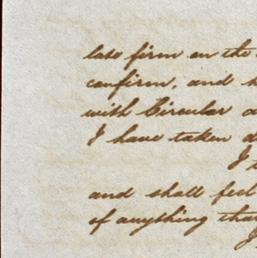 late firm on the
confirm, and
with Circular
I have taken
I
and shall feel
of anything than
I